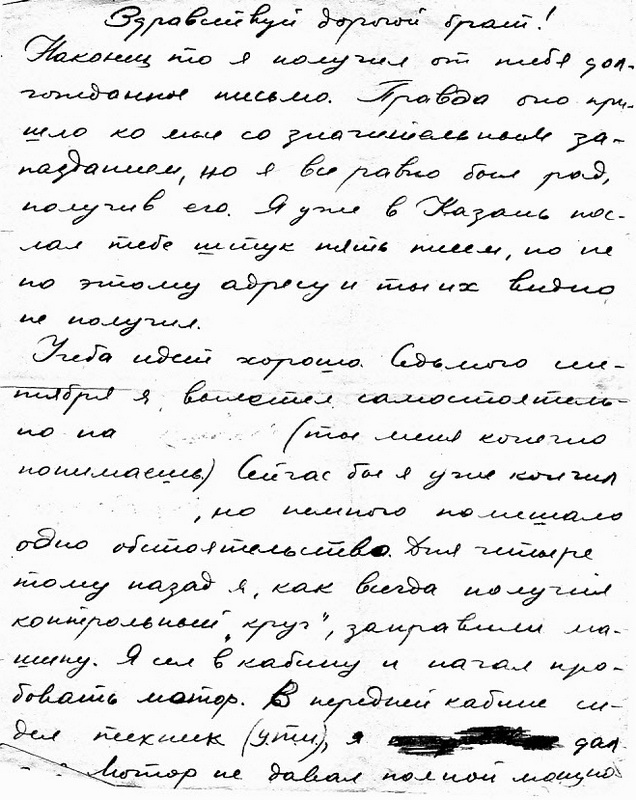 Здравствуй дорогой брат!
Наконец то я получил от тебя дол-
гожданное письмо. Правда оно при-
шло ко мне со значительным за-
паздanием, но я все равно был рад,
получив его. Я уже в Казань пос-
лал тебе штук пять писем, но не
по этому адресу и ты их видно
не получил.
Учеба идет хорошо. Седьмого сен-
тября я вылетел самостоятель-
но на (ты меня конечно
понимаешь) Сейчас бы я уже кончил
, но немного помешало
одно обстоятельство. Дня четыре
тому назад я, как всегда получил
контрольный „круг", заправили ма-
шину. Я сел в кабину и начал про-
бовать мотор. В передней кабине си-
дел техник (ути), я дал
Мотор не давал полной мощно-